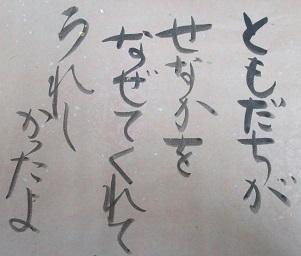 ともだちが
せなかを
なぜてくれて
うれし
かったよ